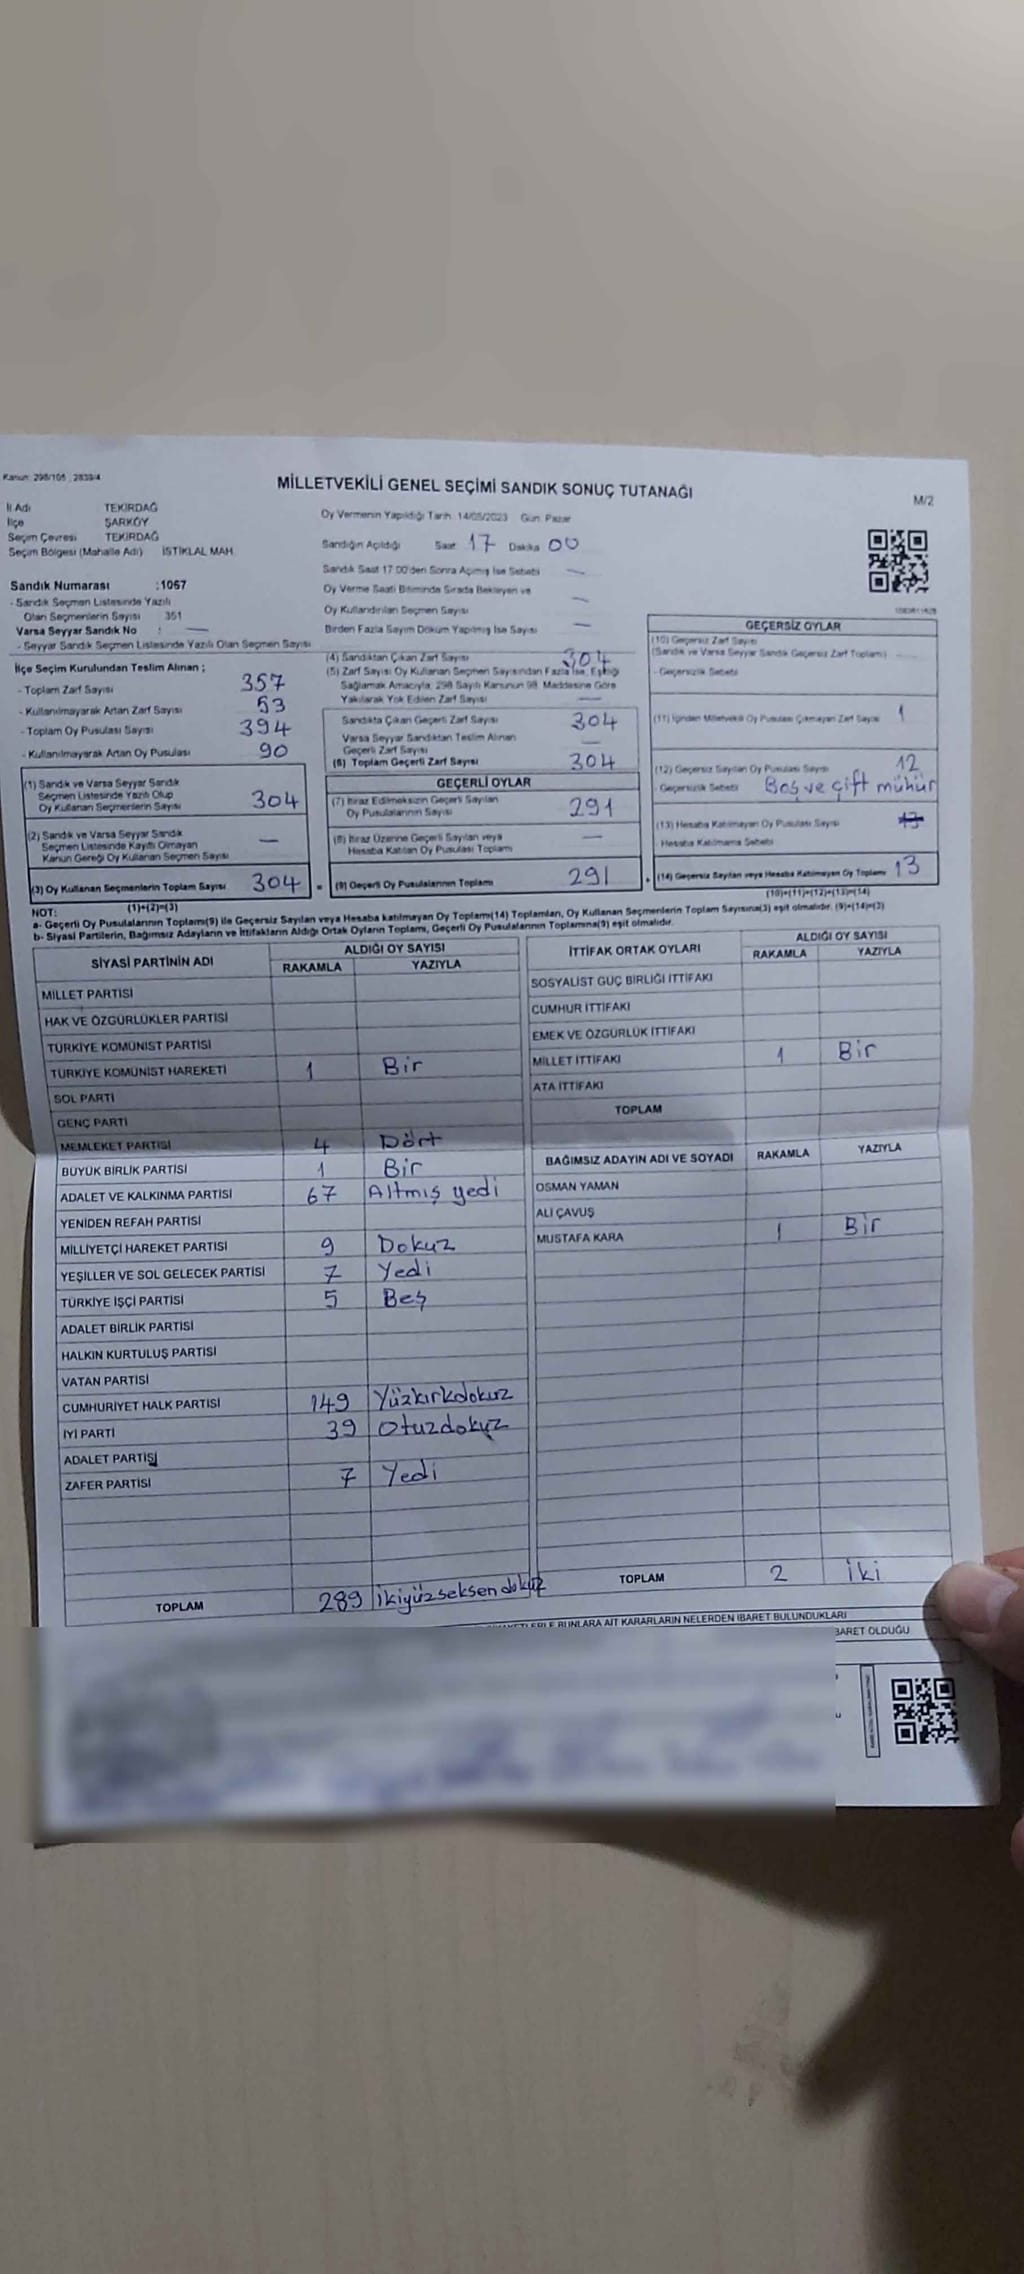 Kanun: 298/105 , 2839/4
MİLLETVEKİLİ GENEL SEÇİMİ SANDIK SONUÇ TUTANAĞI
M/2
İl Adı TEKİRDAĞ
İlçe ŞARKÖY
Seçim Çevresi TEKİRDAĞ
Seçim Bölgesi (Mahalle Adı) İSTİKLAL MAH.
Sandık Numarası :1067
- Sandık Seçmen Listesinde Yazılı
Olan Seçmenlerin Sayısı 351
Varsa Seyyar Sandık No : —
- Seyyar Sandık Seçmen Listesinde Yazılı Olan Seçmen Sayısı
Oy Vermenin Yapıldığı Tarih: 14/05/2023 Gün: Pazar
Sandığın Açıldığı Saat 17 Dakika 00
Sandık Saat 17:00'den Sonra Açılmış İse Sebebi —
Oy Verme Saati Bitiminde Sırada Bekleyen ve
Oy Kullandırılan Seçmen Sayısı —
Birden Fazla Sayım Döküm Yapılmış İse Sayısı —
İlçe Seçim Kurulundan Teslim Alınan ;
- Toplam Zarf Sayısı 357
- Kullanılmayarak Artan Zarf Sayısı 53
- Toplam Oy Pusulası Sayısı 394
- Kullanılmayarak Artan Oy Pusulası 90
(1) Sandık ve Varsa Seyyar Sandık
Seçmen Listesinde Yazılı Olup
Oy Kullanan Seçmenlerin Sayısı 304
(2) Sandık ve Varsa Seyyar Sandık
Seçmen Listesinde Kayıtlı Olmayan
Kanun Gereği Oy Kullanan Seçmen Sayısı —
(3) Oy Kullanan Seçmenlerin Toplam Sayısı 304
(1)+(2)=(3)
(4) Sandıktan Çıkan Zarf Sayısı 304
(5) Zarf Sayısı Oy Kullanan Seçmen Sayısından Fazla İse, Eşitliği
Sağlamak Amacıyla, 298 Sayılı Kanunun 98. Maddesine Göre
Yakılarak Yok Edilen Zarf Sayısı —
Sandıkta Çıkan Geçerli Zarf Sayısı 304
Varsa Seyyar Sandıktan Teslim Alınan
Geçerli Zarf Sayısı —
(6) Toplam Geçerli Zarf Sayısı 304
GEÇERLİ OYLAR
(7) İtiraz Edilmeksizin Geçerli Sayılan
Oy Pusulalarının Sayısı 291
(8) İtiraz Üzerine Geçerli Sayılan veya
Hesaba Katılan Oy Pusulası Toplamı —
= (9) Geçerli Oy Pusulalarının Toplamı 291
GEÇERSİZ OYLAR
(10) Geçersiz Zarf Sayısı
(Sandık ve Varsa Seyyar Sandık Geçersiz Zarf Toplamı)
- Geçersizlik Sebebi
(11) İçinden Milletvekili Oy Pusulası Çıkmayan Zarf Sayısı 1
(12) Geçersiz Sayılan Oy Pusulası Sayısı 12
Geçersizlik Sebebi Boş ve çift mühür
(13) Hesaba Katılmayan Oy Pusulası Sayısı
Hesaba Katılmama Sebebi
+ (14) Geçersiz Sayılan veya Hesaba Katılmayan Oy Toplamı 13
(10)+(11)+(12)+(13)=(14)
NOT:
a- Geçerli Oy Pusulalarının Toplamı(9) ile Geçersiz Sayılan veya Hesaba katılmayan Oy Toplamı(14) Toplamları, Oy Kullanan Seçmenlerin Toplam Sayısına(3) eşit olmalıdır. (9)+(14)=(3)
b- Siyasi Partilerin, Bağımsız Adayların ve İttifakların Aldığı Ortak Oyların Toplamı, Geçerli Oy Pusulalarının Toplamına(9) eşit olmalıdır.
SİYASİ PARTİNİN ADI ALDIĞI OY SAYISI
RAKAMLA YAZIYLA
MİLLET PARTİSİ
HAK VE ÖZGÜRLÜKLER PARTİSİ
TÜRKİYE KOMÜNİST PARTİSİ
TÜRKİYE KOMÜNİST HAREKETİ 1 Bir
SOL PARTİ
GENÇ PARTİ
MEMLEKET PARTİSİ 4 Dört
BÜYÜK BİRLİK PARTİSİ 1 Bir
ADALET VE KALKINMA PARTİSİ 67 Altmış yedi
YENİDEN REFAH PARTİSİ
MİLLİYETÇİ HAREKET PARTİSİ 9 Dokuz
YEŞİLLER VE SOL GELECEK PARTİSİ 7 Yedi
TÜRKİYE İŞÇİ PARTİSİ 5 Beş
ADALET BİRLİK PARTİSİ
HALKIN KURTULUŞ PARTİSİ
VATAN PARTİSİ
CUMHURİYET HALK PARTİSİ 149 Yüzkırkdokuz
İYİ PARTİ 39 Otuzdokuz
ADALET PARTİSİ
ZAFER PARTİSİ 7 Yedi
TOPLAM 289 ikiyüzseksendokuz
İTTİFAK ORTAK OYLARI ALDIĞI OY SAYISI
RAKAMLA YAZIYLA
SOSYALİST GÜÇ BİRLİĞİ İTTİFAKI
CUMHUR İTTİFAKI
EMEK VE ÖZGÜRLÜK İTTİFAKI
MİLLET İTTİFAKI 1 Bir
ATA İTTİFAKI
TOPLAM
BAĞIMSIZ ADAYIN ADI VE SOYADI RAKAMLA YAZIYLA
OSMAN YAMAN
ALİ ÇAVUŞ
MUSTAFA KARA 1 Bir
TOPLAM 2 iki
BUNLARA AİT KARARLARIN NELERDEN İBARET BULUNDUKLARI
BARET OLDUĞU